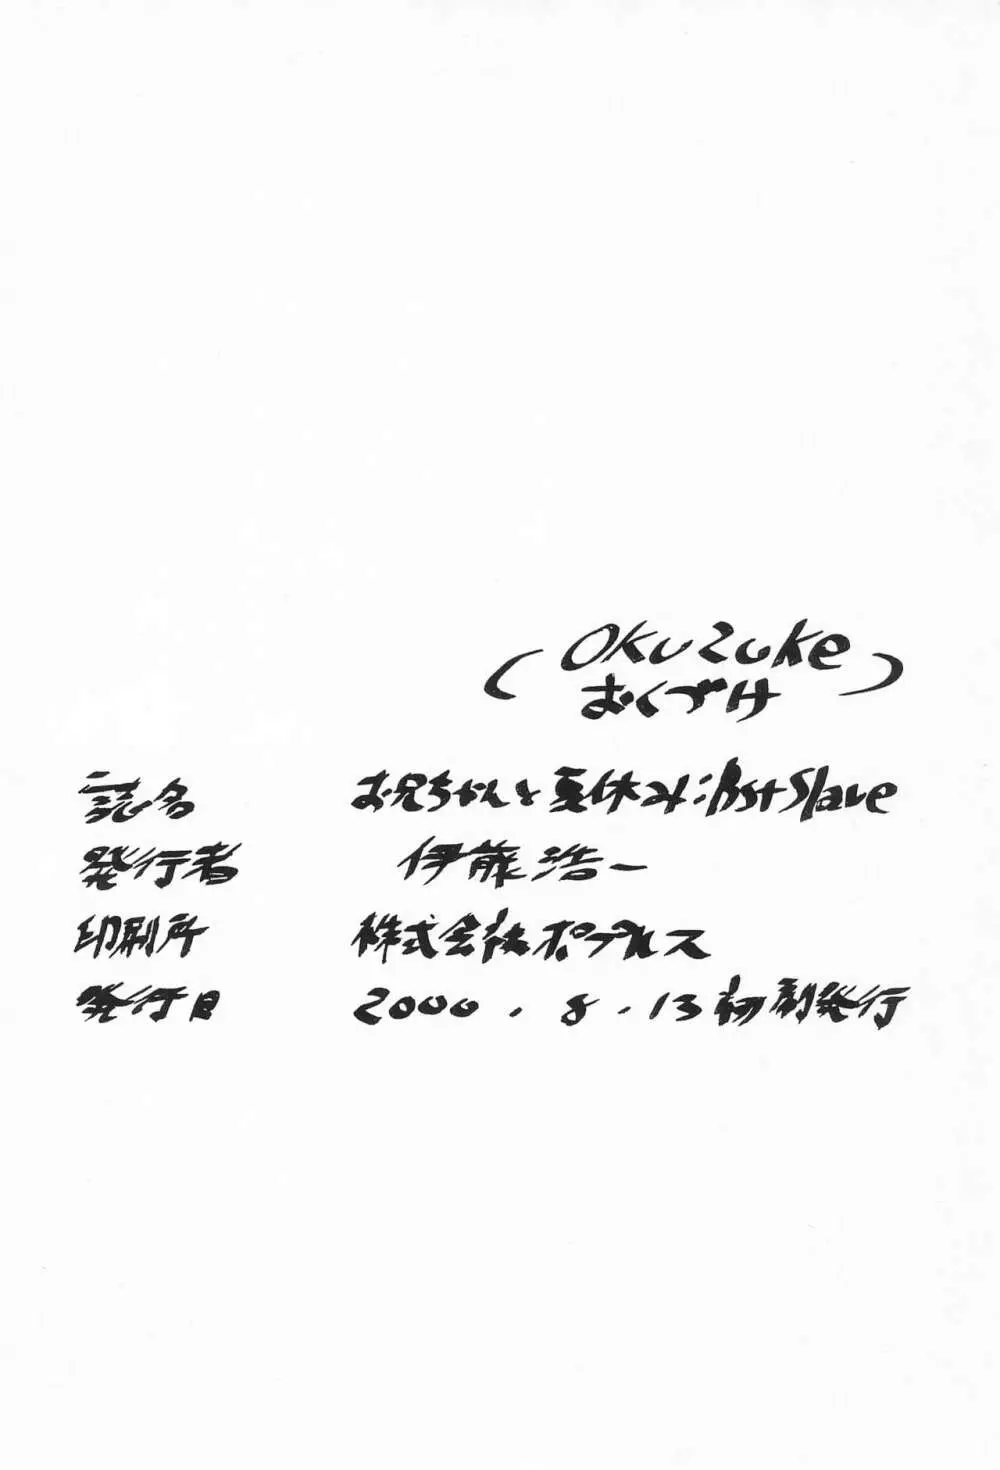 Okuzuke
おくづけ
誌名 お兄ちゃんと夏休み:first Slave
発行者 伊藤浩一
印刷所 株式会社ポプルス
発行日 2000.8.13初刷発行